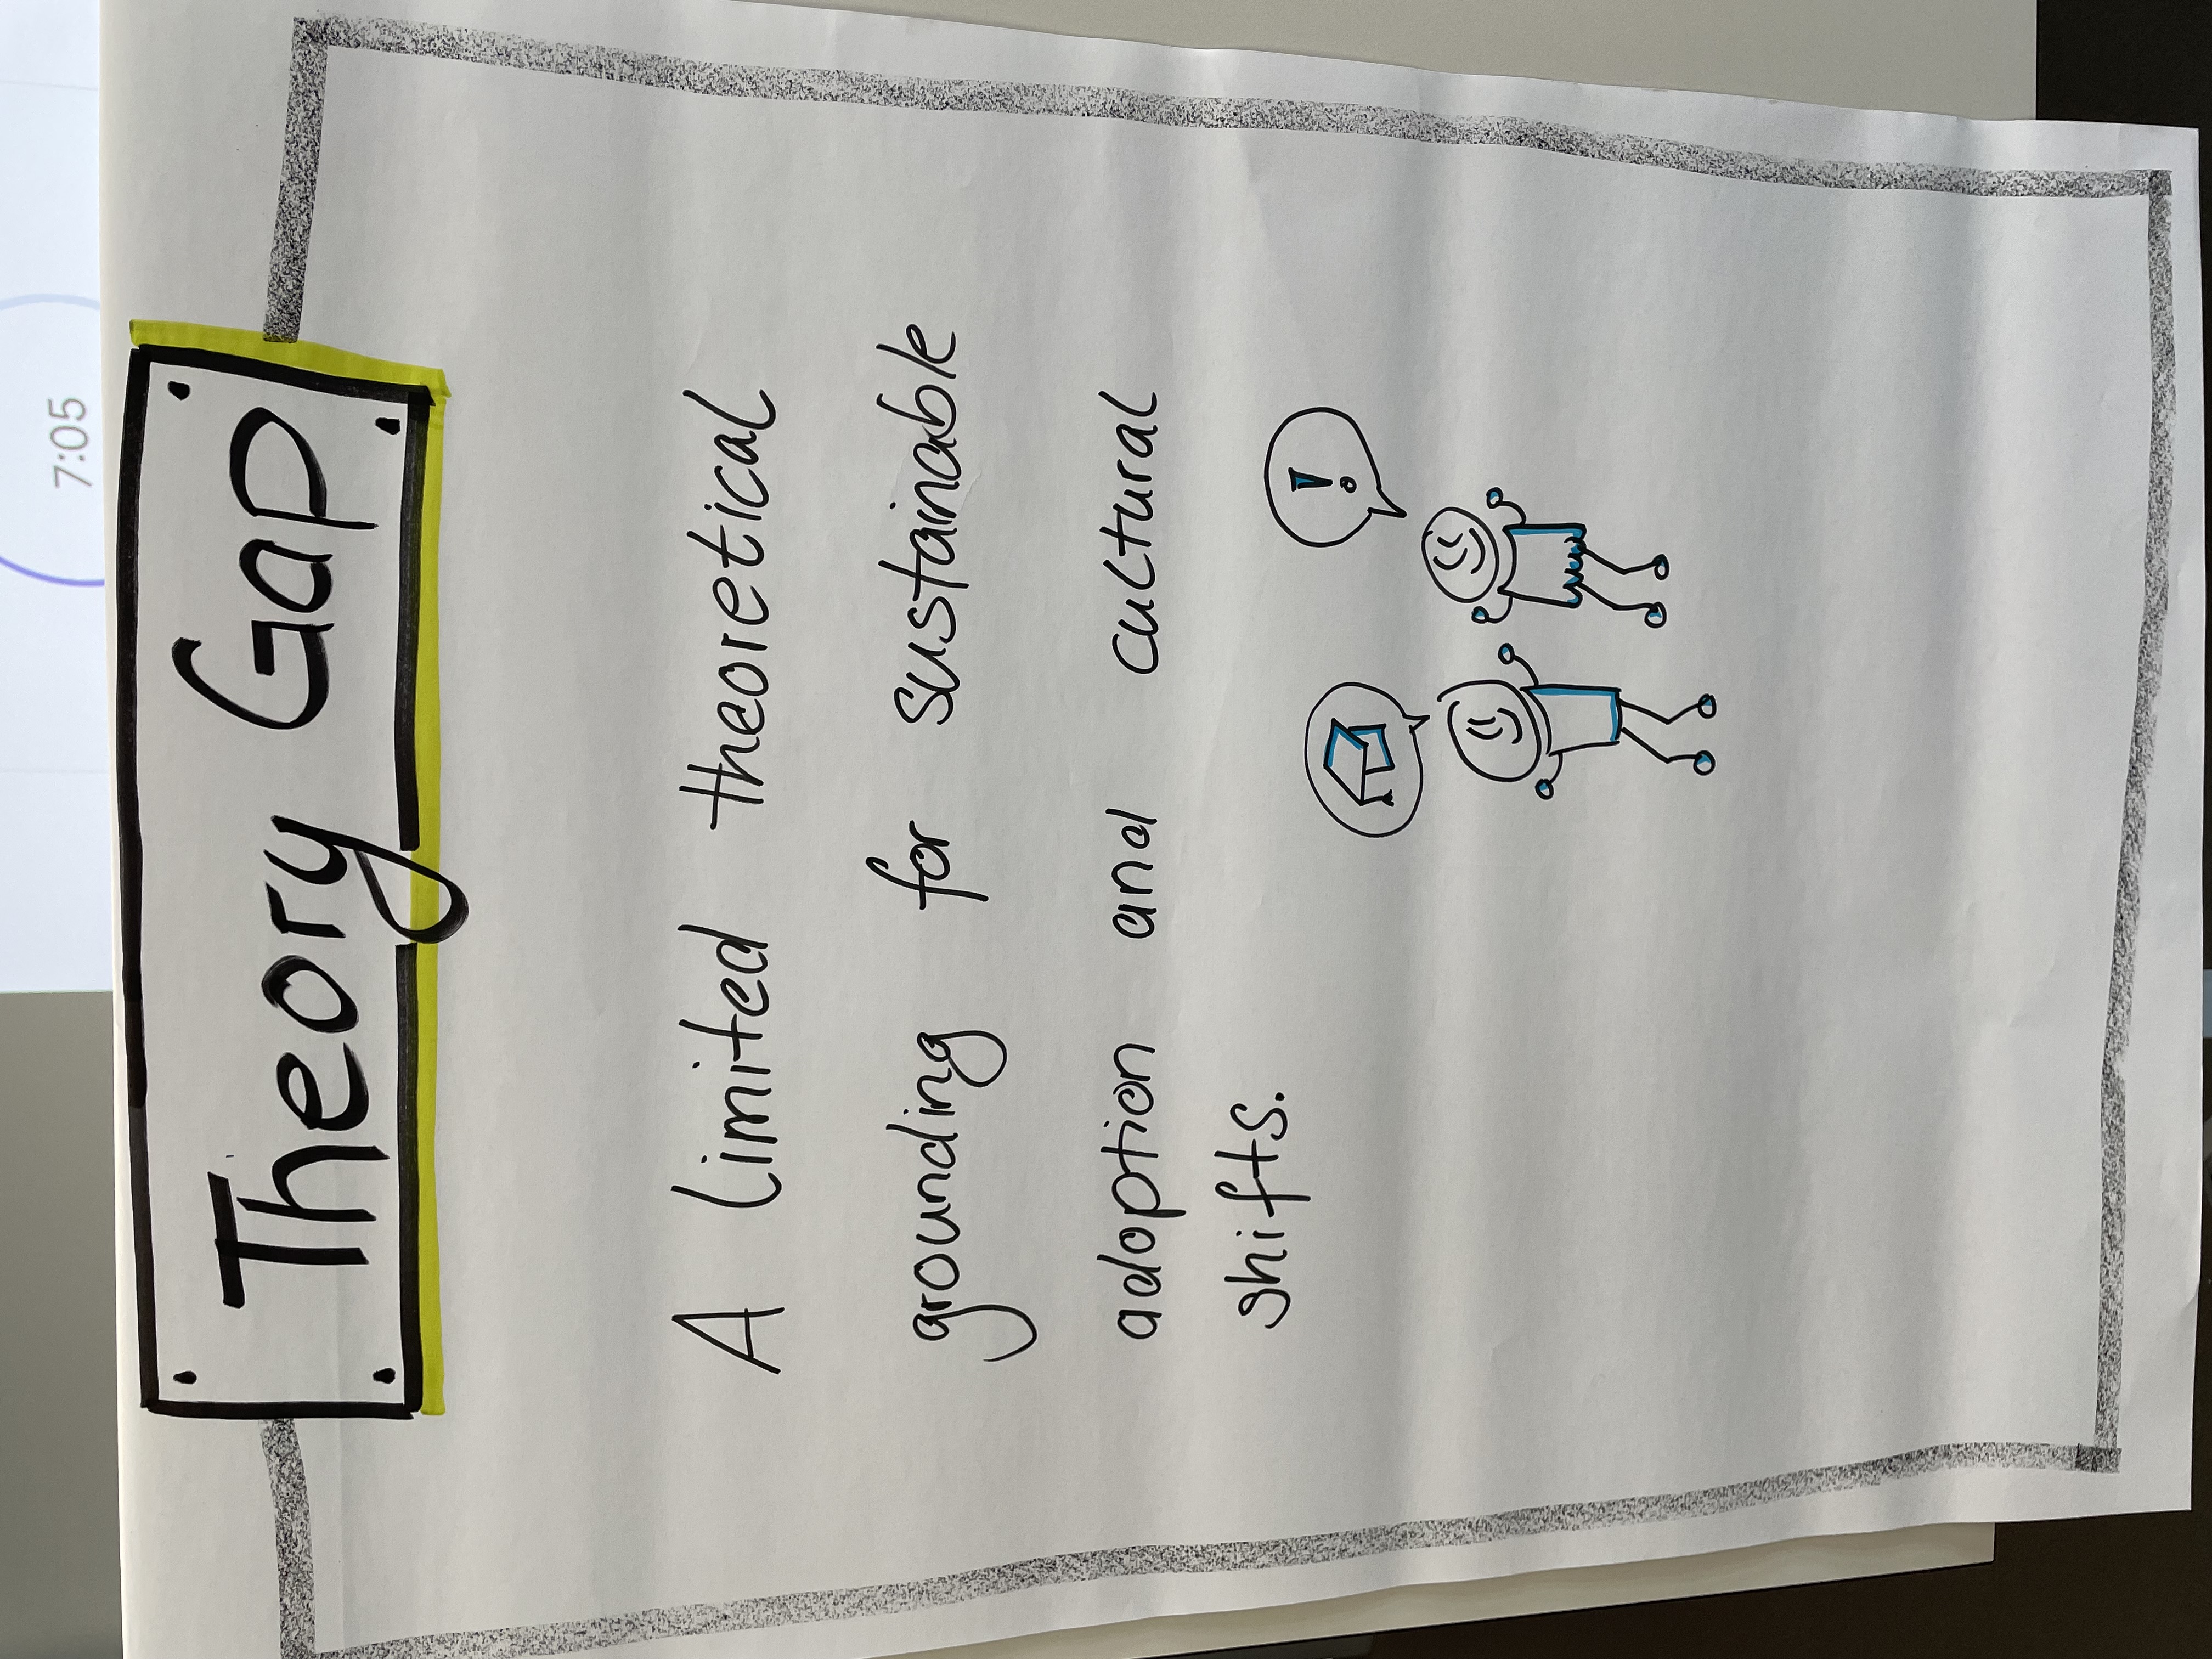 7:05
Theory Gap
A limited theoretical
grounding for sustainable
adoption and cultural
shifts.
!